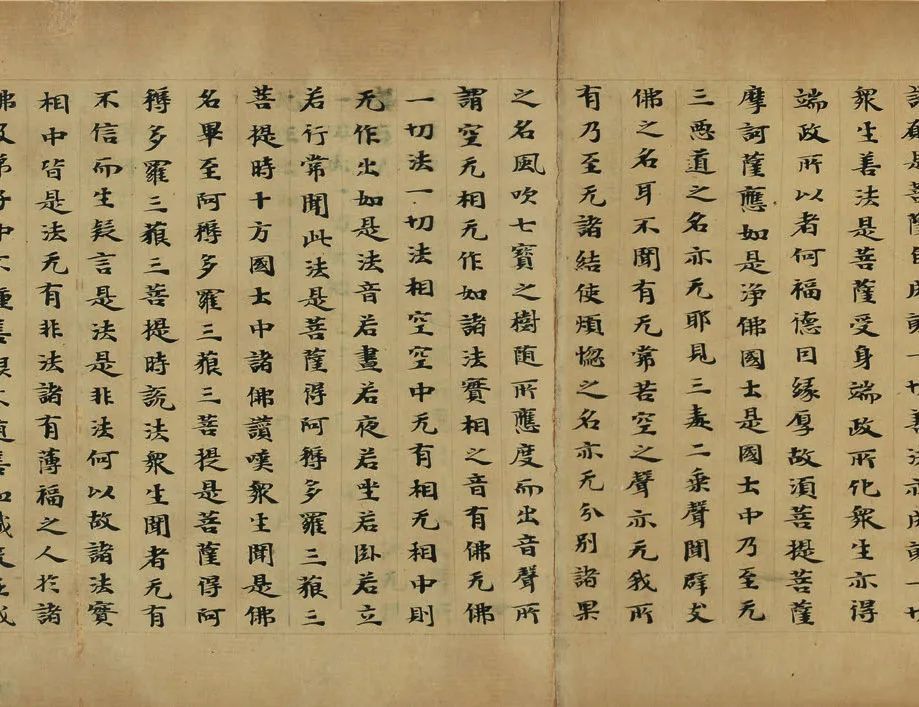 是菩薩自成就一切善法亦成就一切
衆生善法是菩薩受身端政所化衆生亦得
端政所以者何福德因緣厚故須菩提菩薩
摩訶薩應如是淨佛國土是國土中乃至无
三惡道之名亦无耶見三毒二乘聲聞辟支
佛之名耳不聞有无常苦空之聲亦无我所
有乃至无諸結使煩惱之名亦无分別諸果
之名風吹七寶之樹隨所應度而出音聲所
謂空无相无作如諸法實相之音有佛无佛
一切法一切法相空空中无有相无相中則
无作出如是法音若晝若夜若坐若卧若立
若行常聞此法是菩薩得阿耨多羅三藐三
菩提時十方國土中諸佛讚嘆衆生聞是佛
名畢至阿耨多羅三藐三菩提是菩薩得阿
耨多羅三藐三菩提時說法衆生聞者无有
不信而生疑言是法是非法何以故諸法實
相中皆是法无有非法諸有薄福之人於諸
佛及弟子中不種善根不隨善知識沒在我